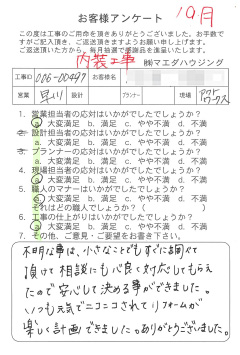 お客様アンケート
10月
この度は工事のご用命を頂きありがとうございました。お手数で
すがご記入頂き、ご返送頂きますようお願い申し上げます。
ご返送頂いた方から、毎月抽選で
内装工事
工事ID 006-00497 お客様名 ㈱マエダハウジング
営業 早川 設計 プランナー 現場 アクト ワークス
1. 営業担当者の応対はいかがでしたでしょうか?
a 大変満足 b 満足 c やや不満 d 不満
2. 設計担当者の応対はいかがでしたでしょうか?
a 大変満足 b 満足 c やや不満 d 不満
3. プランナーの応対はいかがでしたでしょうか?
a 大変満足 b 満足 c やや不満 d 不満
4. 現場担当者の応対はいかがでしたでしょうか?
a 大変満足 b 満足 c やや不満 d 不満
5. 職人のマナーはいかがでしたでしょうか?
a 大変満足 b 満足 c やや不満 d 不満
それはどの職人でしょうか?( )
6. 工事の仕上がりはいかがでしたでしょうか?
a 大変満足 b 満足 c やや不満 d 不満
7. その他、ご意見・ご要望をお書き下さい。
不明な事は、小さなことでもすぐに調べて
頂けて相談にも心良く対応してもらえ
たので安心して決める事ができました。
いつも元気でニコニコされてリフォームが
楽しく計画できました。ありがとうございました。